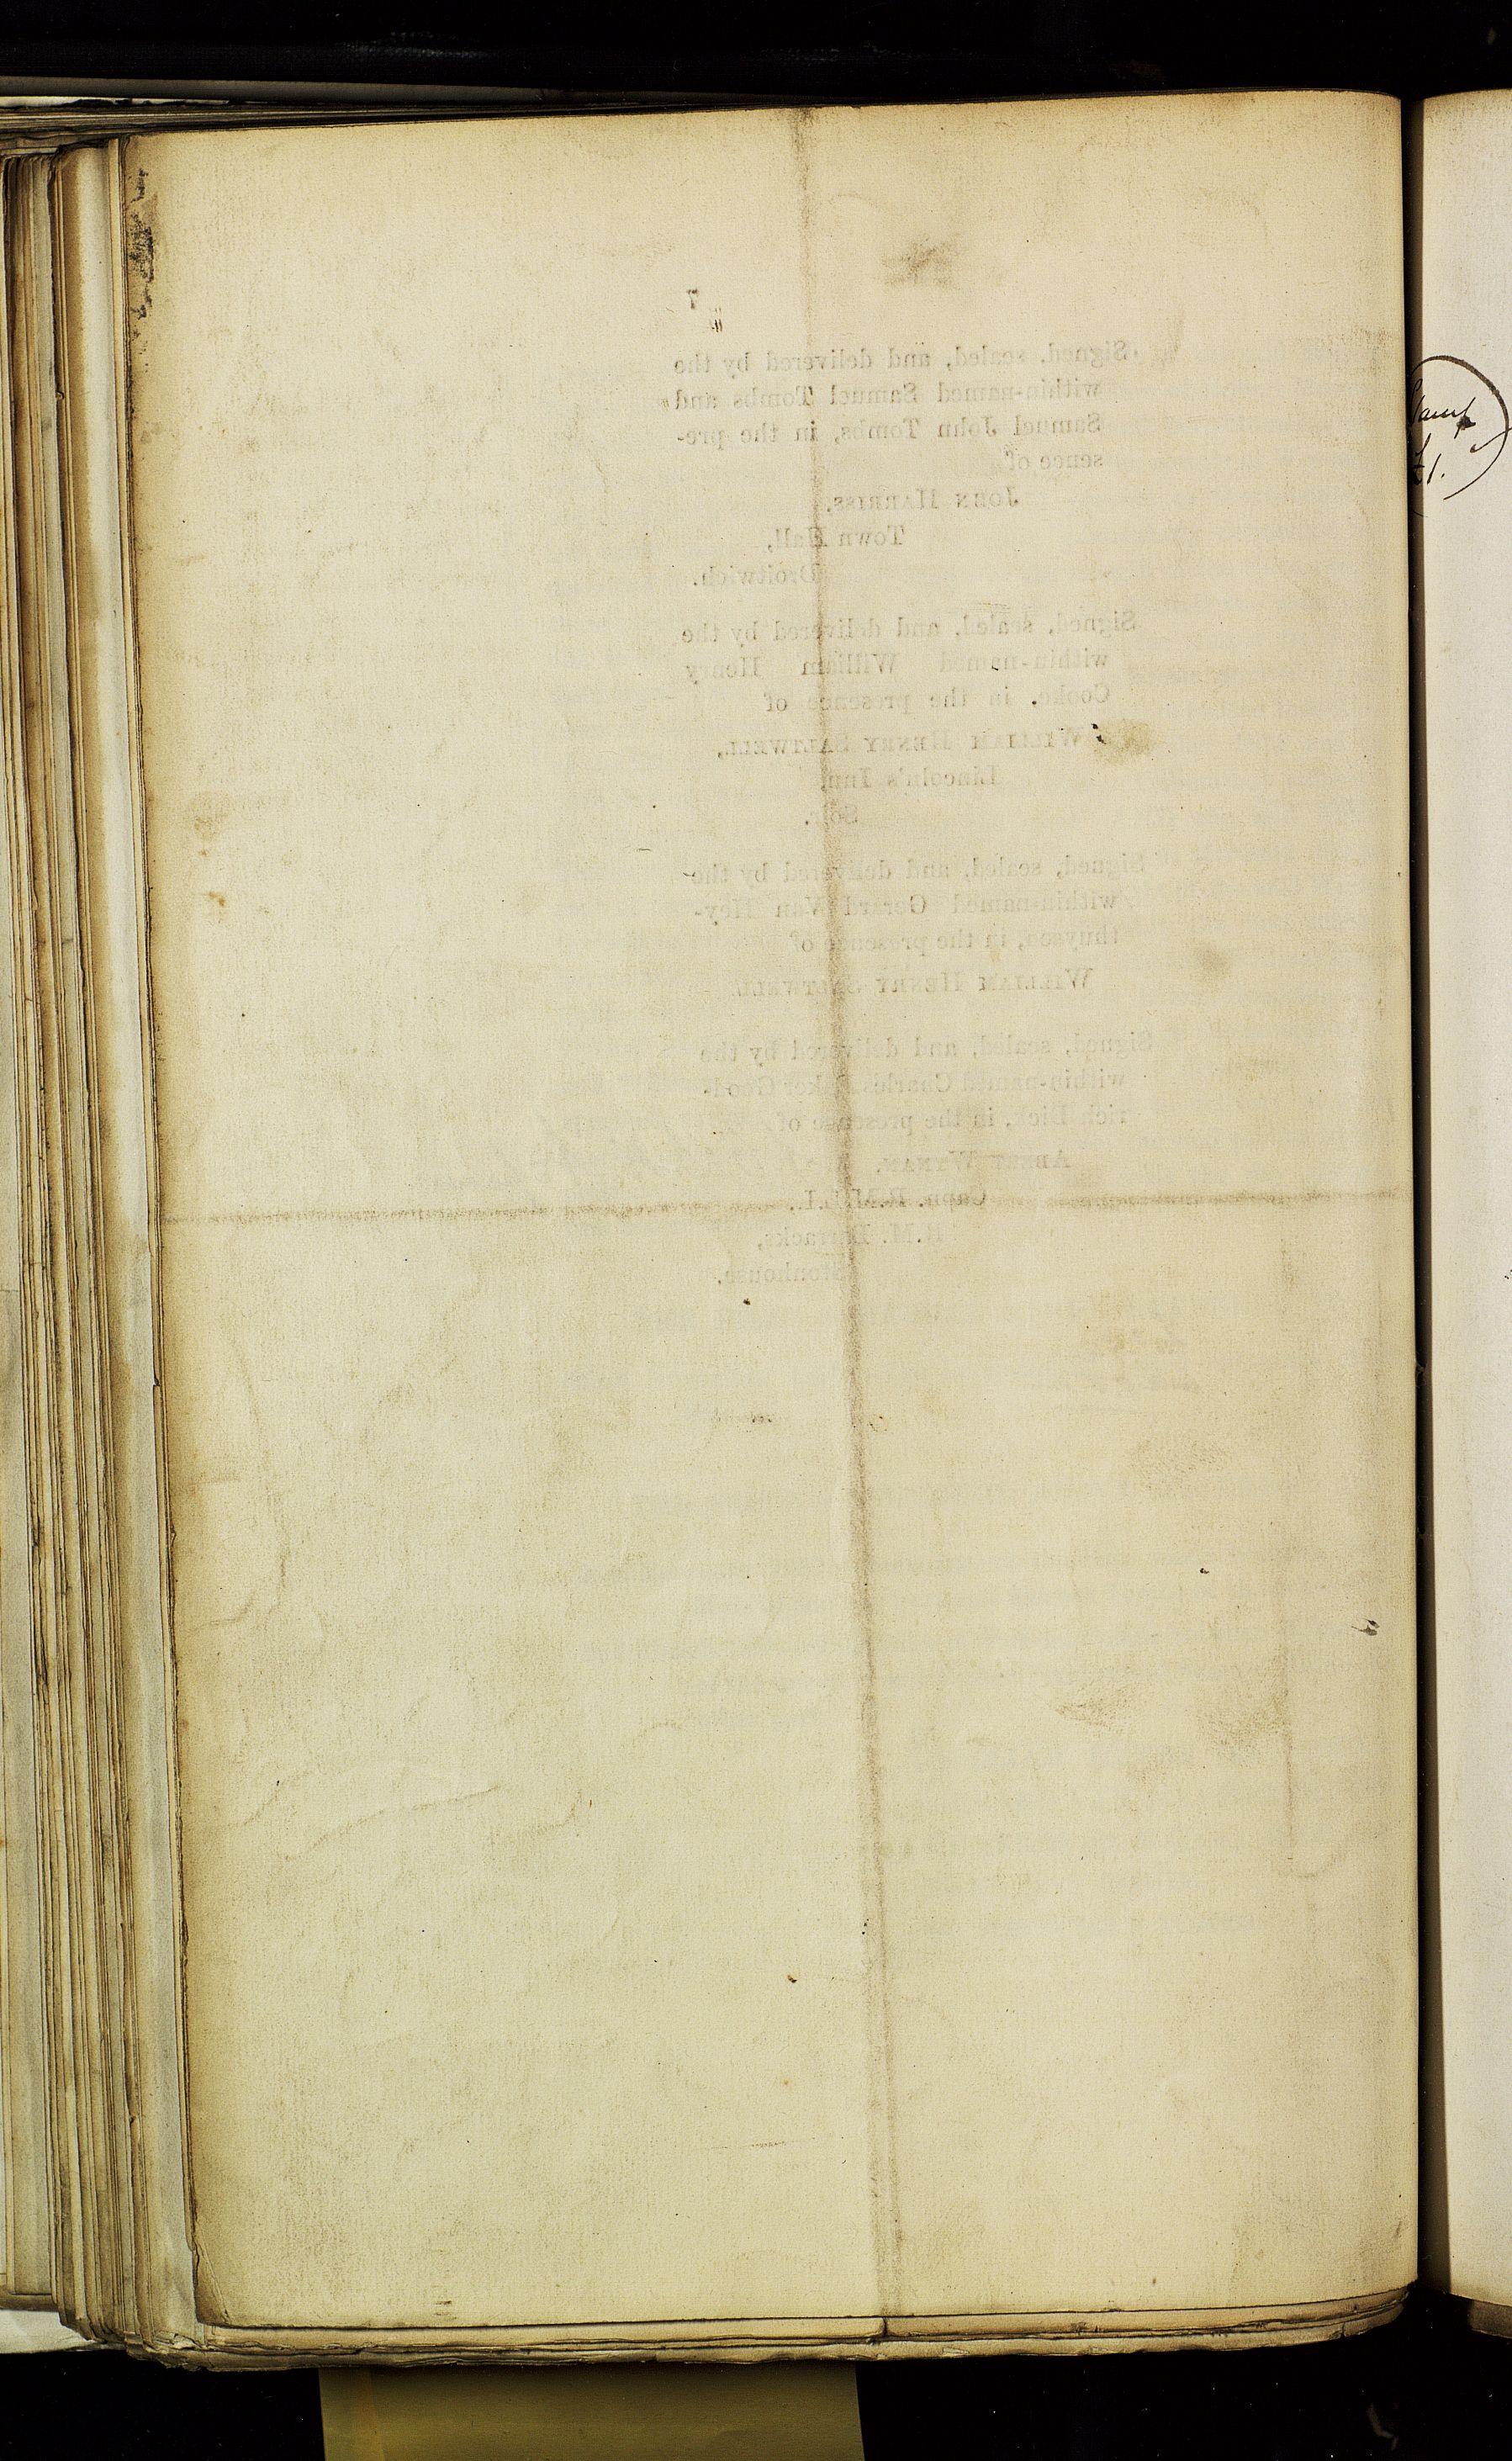 7
Signed, sealed, and delivered by the
within-named Samuel Tombs and
Samuel John Tombs, in the pre-
sence of
JOHN HARRISS,
Town Hall,
Droitwich.
Signed, sealed, and delivered by the
within-named William Henry
Cooke, in the presence of
WILLIAM HENRY SALTWELL,
Lincoln's Inn,
Solr.
Signed, sealed, and delivered by the
within-named Gerard Van Hey-
thuysen, in the presence of
WILLIAM HENRY SALTWELL.
Signed, sealed, and delivered by the
within-named Charles Good-
rich Dick, in the presence of
Capn. R.M.L.I.,
R.M. Barracks,
Stonhouse.
£1.